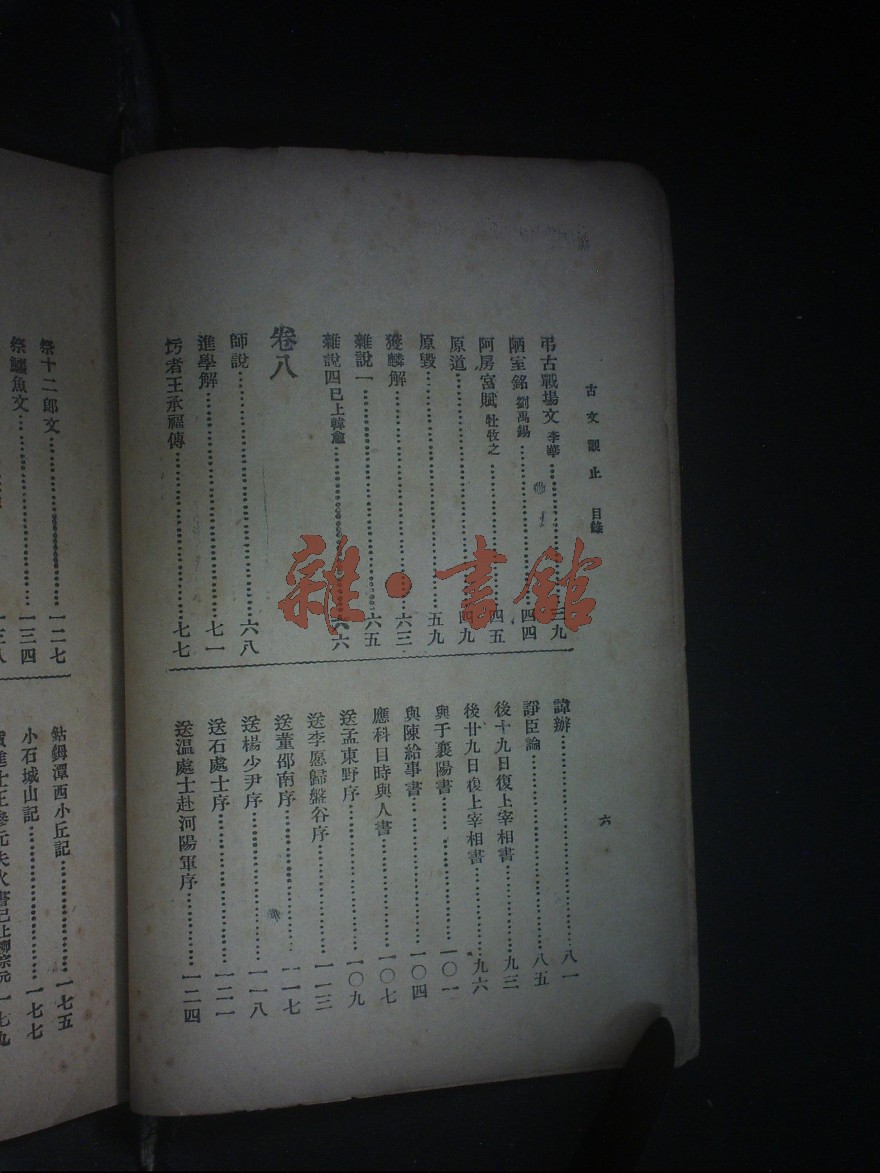 古文觀止 目錄
六
弔古戰場文 李華 三九
陋室銘 劉禹錫 四四
阿房宮賦 杜牧之 四五
原道 四九
原毀 五九
獲麟解 六三
雜說一 六五
雜說四已上韓愈 六六
卷八
師說 六八
進學解 七一
圬者王承福傳 七七
諱辦 八一
諍臣論 八五
後十九日復上宰相書 九三
後廿九日復上宰相書 九六
與于襄陽書 一〇一
與陳給事書 一〇四
應科目時與人書 一〇七
送孟東野序 一〇九
送李愿歸盤谷序 一一三
送董邵南序 一一七
送楊少尹序 一一八
送石處士序 一二一
送溫處士赴河陽軍序 一二四
祭十二郎文 一二七
祭鱷魚文 一三四
一三八
鈷鉧潭西小丘記 一七五
小石城山記 一七七
賀進士王參元失火書已上柳宗元 一七九
雜·書館